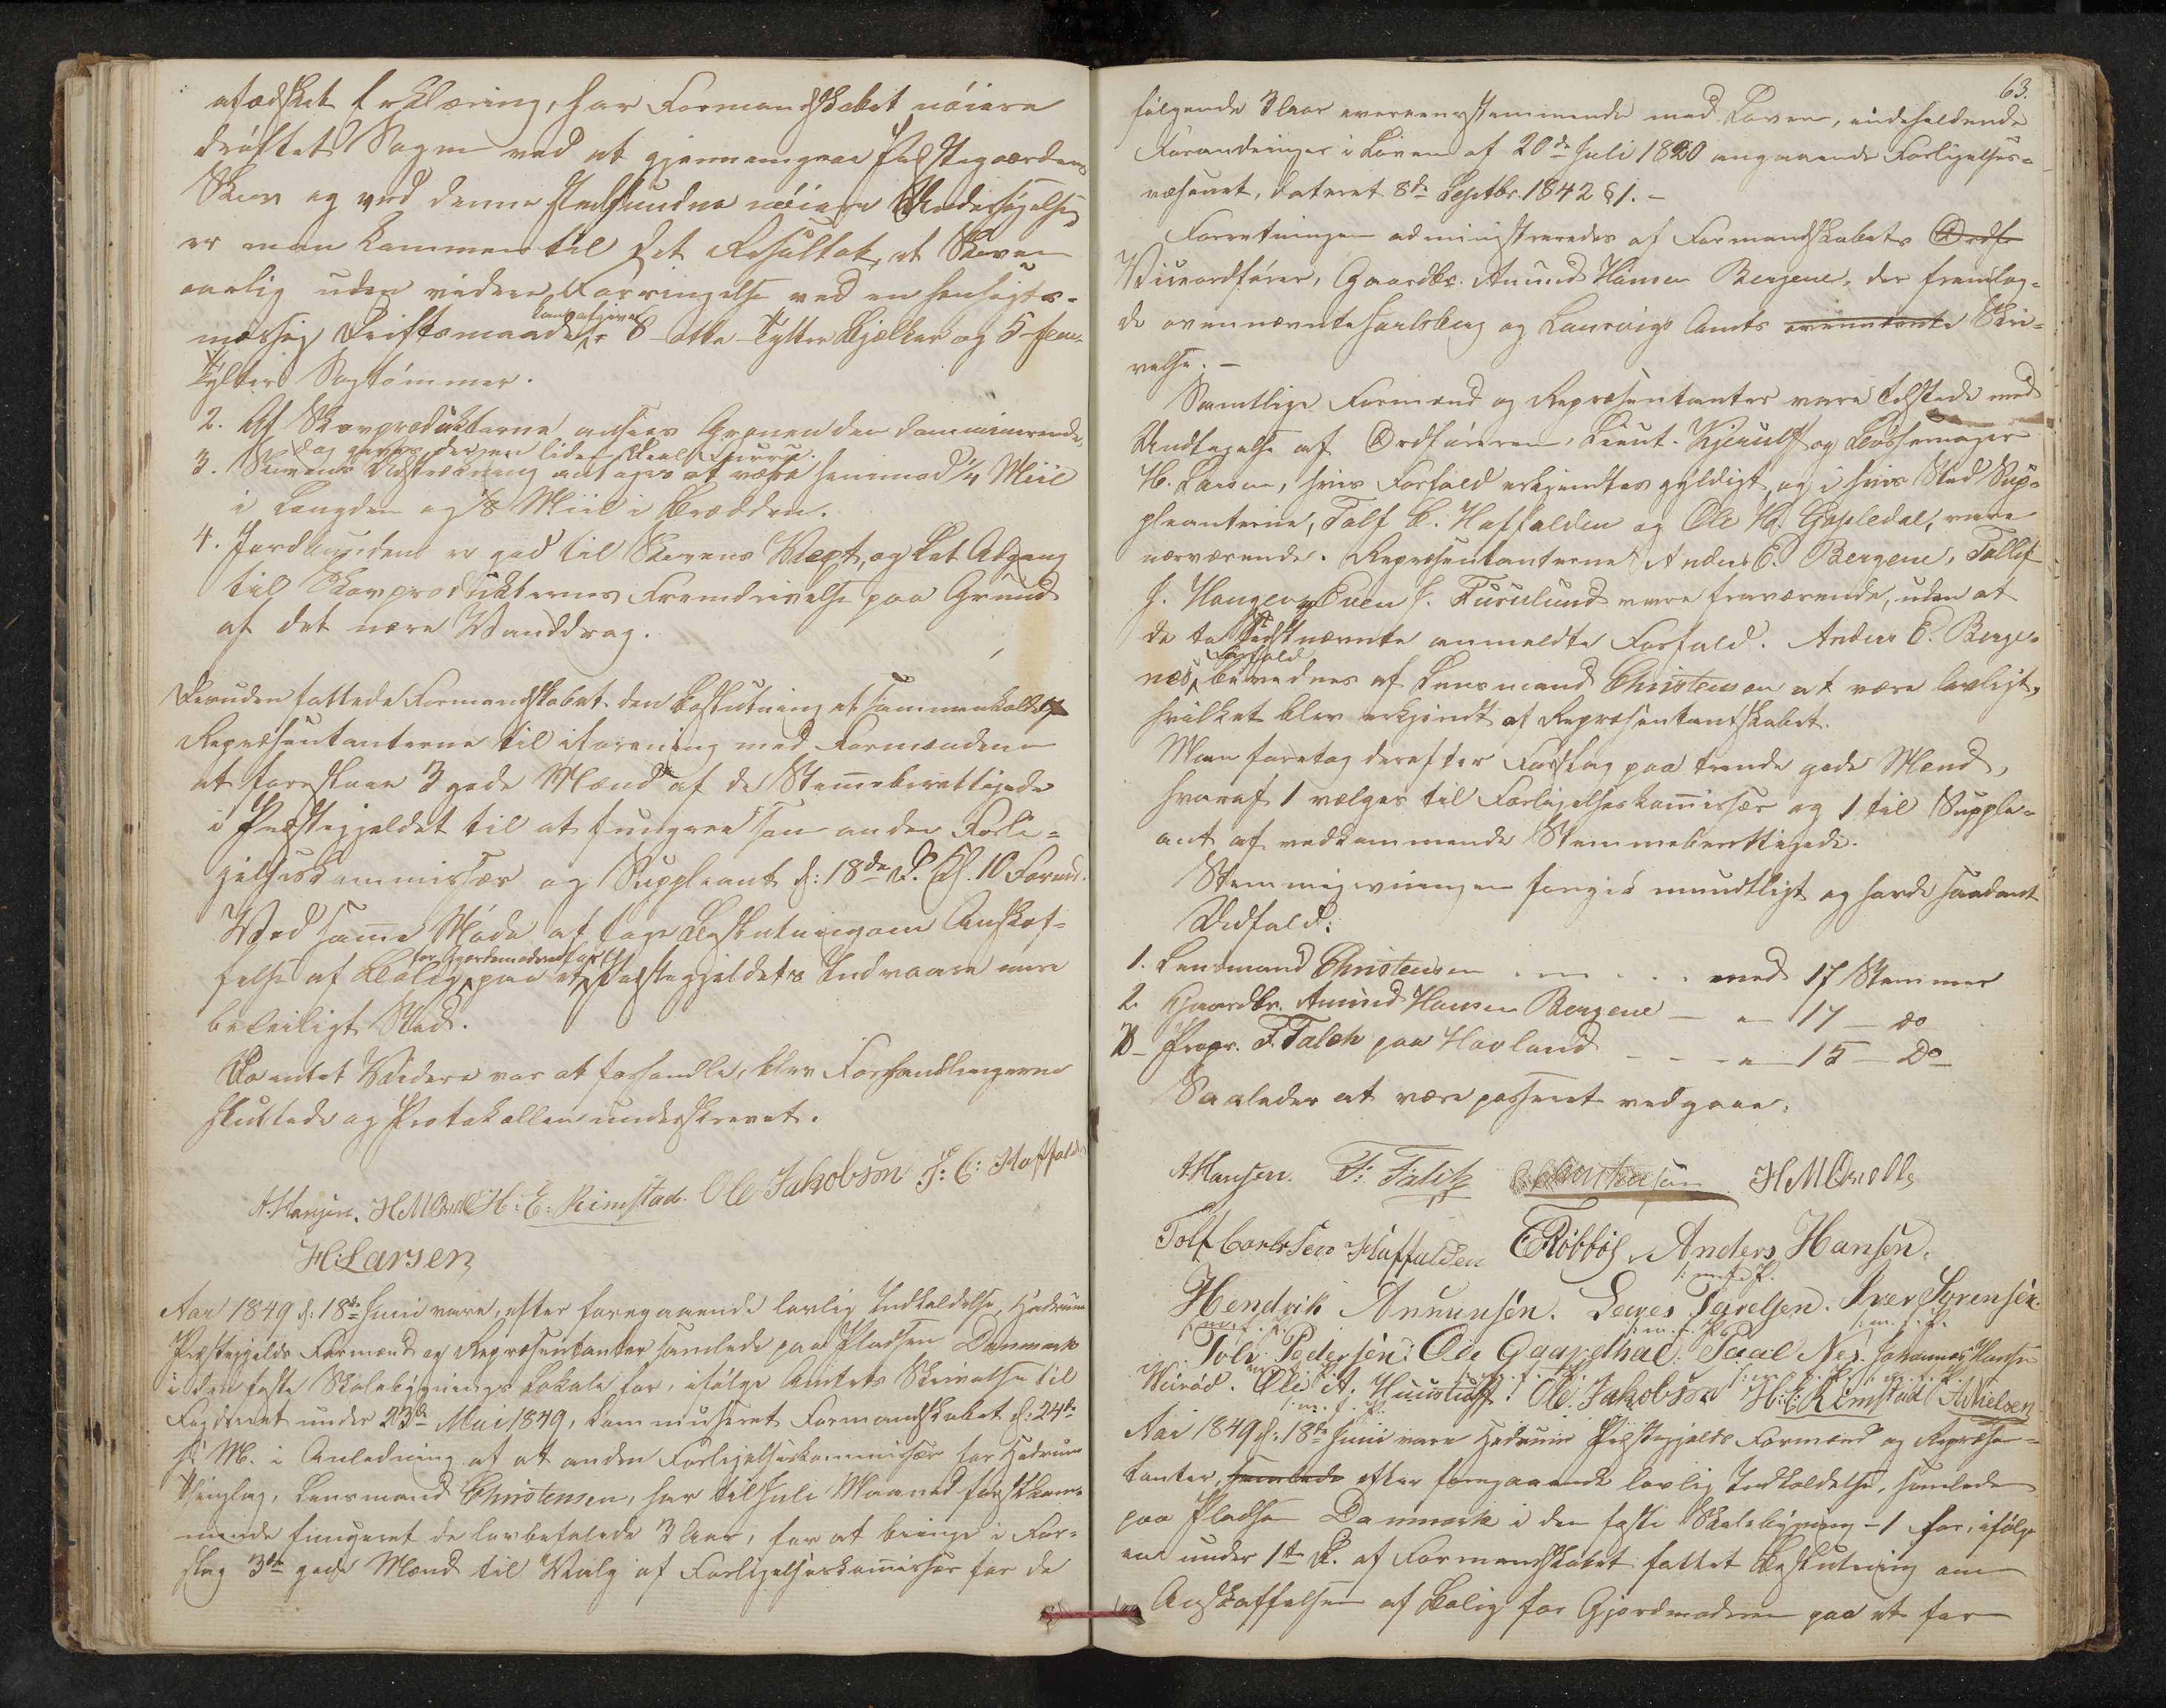 afædsket Erklæring, har Formandskabet nøiere
drøftet Sagen ved at gjennemgaae Præstegaardens
Skov og ved denne stedfundne nøiere Undersøgelse
er man kommen til det Resultat, at Skoven
aarlig uden videre Forringelse ved en hensigts-
mæssig Driftsmaade kan afgive 8 - otte - Tylter Bjelker og 5 - fem -
Tylter Sagtømmer.
2. Af Skovprodukterne ansees Granen den dominerende,
og haves der en liden Deel Furru.
3. Skovens Udstrækning antages at være henimod 1/4 Miil
i Længden og 1/8 Miil i Bredden.
4. Jordbunden er god til Skovens Væxt, og let Adgang
til Skovprodukternes Fremdrivelse paa Grund
af det nære Vanddrag.
Desuden fattede Formandskabet den Beslutning at sammenkalde
Repræsentanterne til i forening med Formændene
at foreslaae 3 gode Mænd af de Stemmeberettigede
i Præstegjeldet til at fungere som anden Forli-
gelseskommissær og Suppleant d: 18de d. Kl. 10 Formd.
Ved samme Møde at tage Beslutning om Anskaf-
felse af Bolig for Gjordemoderen paa et for Præstegjeldets Indvaanere mere
beleiligt Sted.
Da intet Videre var at forhandle, blev Forhandlingerne
sluttede og Protokollen underskrevet.
A. Hansen. H M Orvelle H: E: Rimstad. Ole Jakobsøn T: C: Haffalden
H: Larsen
Aar 1849 d: 18de Juni vare, efter foregaaende lovlig Indkaldelse, Hedrums
Præstegjelds Formænd og Repræsentanter samlede paa Pladsen Danmark
i den faste Skolebygnings Lokale for, ifølge Amtets Skrivelse til
Fogderiet under 23de Mai 1849, kommuniseret Formandskabet d: 24de
s: M. i Anledning af at anden Forligelseskommissær for Hedrums
Thinglag, Lensmand Christensen, har til Juli Maaned førstkom-
mende fungeret de lovbefalede 3 Aar, for at bringe i For-
slag 3de gode Mænd til Valg af Forligelseskommissær for de
63.
følgende 3 Aar overensstemmende med Loven, indeholdende
Forandringer i Loven af 20de Juli 1820 angaaende Forligelses-
væsenet, dateret 8de Septbr. 1842 § 1. -
Forretningen administreredes af Formandskabets Ordfø
Viceordfører, Gaardbr. Amund Hansen Bergene, der fremlag-
de ovennævnte Jarlsberg og Laurvigs Amts ovennævnte Skri-
velse. -
Samtlige Formænd og Repræsentanter vare tilstede med
Undtagelse af Ordføreren, Lieut. Kjerulf og Bøssemager
H. Larsen, hvis Forfald erkjendtes gyldigt, og i hvis Sted Sup-
pleanterne, Tolf C. Haffalden og Ole H. Gopledal, vare
nærværende. Repræsentanterne Anders E. Bergene, Tollef
J. Haugen og Even J. Furulund vare fraværende, uden at
de to sidstnævnte anmeldte Forfald. Anders E. Berge-
nes Forfald bevidnes af Lensmand Christensen at være lovligt,
hvilket blev erkjendt af Repræsentantskabet.
Man foretog derefter Forslag paa trende gode Mænd,
hvoraf 1 vælges til Forligelseskommissær og 1 til Supple-
ant af vedkommende Stemmeberettigede.
Stemmegivningen foregik mundtligt og havde saadant
Udfald:
1. Lensmand Christensen . . . . . med 17 Stemmer
2. Gaardbr. Amund Hansen Bergene - " - 17 - do
3 - Propr. F. Falch paa Hovland - - - " - 15 - Do -
Saaledes at være passeret vedgaaes:
A. Hansen. F: Falch Christensen H M Orvelle
Tolf Carlsen Haffalden E Röbböl, Anders Hansen.
Hendrik Anmunsen. Lars Iverssen. Iver Sørensen.
Tolv Pedersen: Ole Gaapethal: Paal Nes. Johannes Hansen
Ole A: Ole Jakobsøn H: E: Rimstad A Nielsen
Aar 1849 d: 18de Juni vare Hedrums Præstegjelds Formænd og Repræsen-
tanter, samlede efter foregaaende lovlig Indkaldelse, samlede
paa Pladsen Danmark i den faste Skolebygning - for, ifølge
en under 1ste d. af Formandskabet fattet Beslutning om
Anskaffelsen af Bolig for Gjordmoderen paa et for